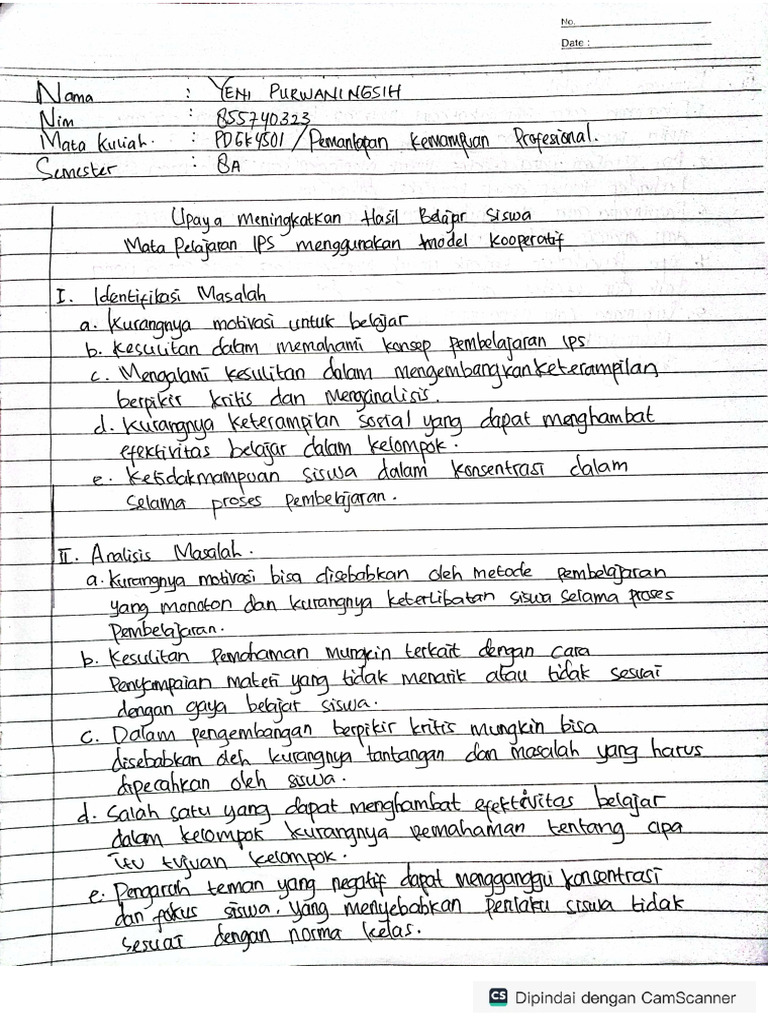 No.
Date :
Nama : YENI PURWANINGSIH
Nim : 855740323
Mata Kuliah. : PDGK4501 / Pemantapan Kemampuan Profesional.
Semester : 8A
Upaya Meningkatkan Hasil Belajar Siswa
Mata Pelajaran IPS menggunakan model Kooperatif
I. Identifikasi Masalah
a. Kurangnya motivasi untuk belajar
b. Kesulitan dalam memahami konsep pembelajaran IPS
c. Mengalami kesulitan dalam mengembangkan keterampilan
berpikir kritis dan Menganalisis.
d. Kurangnya keterampilan sosial yang dapat menghambat
efektivitas belajar dalam kelompok.
e. Ketidakmampuan siswa dalam konsentrasi dalam
selama proses pembelajaran.
II. Analisis Masalah.
a. Kurangnya motivasi bisa disebabkan oleh metode pembelajaran
yang monoton dan kurangnya keterlibatan siswa selama proses
Pembelajaran.
b. Kesulitan Pemahaman mungkin terkait dengan cara
Penyampaian materi yang tidak menarik atau tidak sesuai
dengan gaya belajar siswa.
c. Dalam pengembangan berpikir kritis mungkin bisa
disebabkan oleh kurangnya tantangan dan masalah yang harus
dipecahkan oleh siswa.
d. Salah satu yang dapat menghambat efektivitas belajar
dalam kelompok kurangnya pemahaman tentang apa
itu tujuan kelompok.
e. Pengaruh teman yang negatif dapat mengganggu konsentrasi
dan fokus siswa. yang menyebabkan perilaku siswa tidak
sesuai dengan norma kelas.
CS Dipindai dengan CamScanner